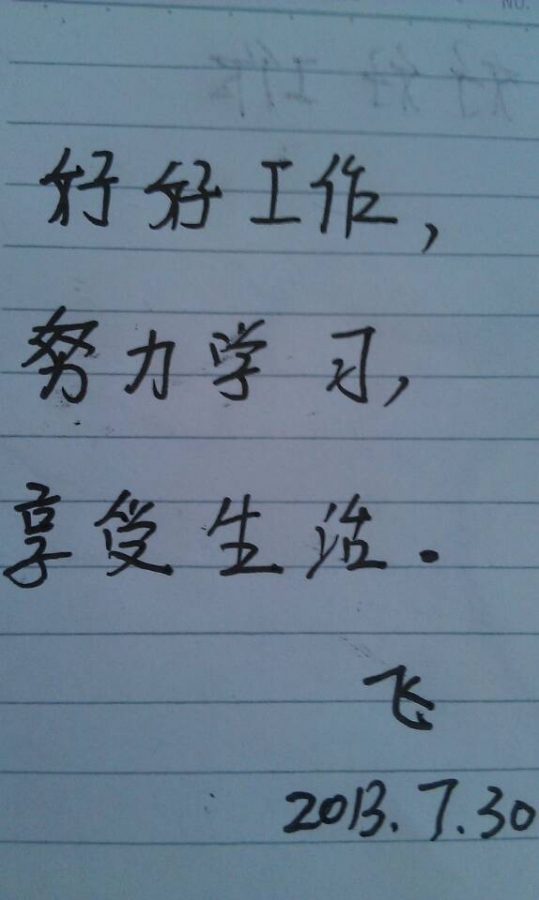 NO.
好好工作,
努力学习,
享受生活.
飞
2013.7.30